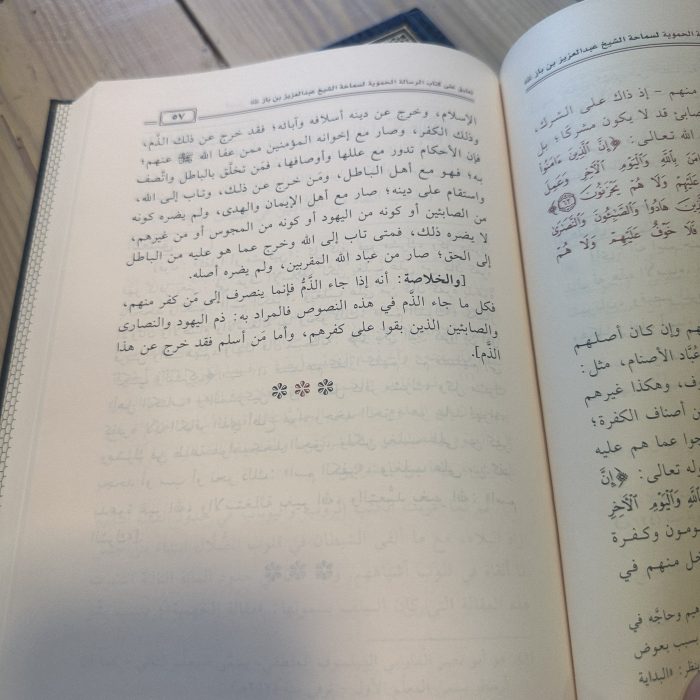 تعليق على كتاب الرسالة الحموية لسماحة الشيخ عبدالعزيز بن باز
٥٧
الإسلام، وخرج عن دينه أسلافه وآبائه؛ فقد خرج عن ذلك الذَّم،
وذلك الكفر، وصار مع إخوانه المؤمنين ممن عفا الله ﷻ عنهم؛
فإن الأحكام تدور مع عللها وأوصافها، فمَن تخلَّق بالباطل واتَّصف
به؛ فهو مع أهل الباطل، ومَن خرج عن ذلك، وتاب إلى الله،
واستقام على دينه؛ صار مع أهل الإيمان والهدى، ولم يضره كونه
من الصابئين أو كونه من اليهود أو كونه من المجوس أو من غيرهم،
لا يضره ذلك، فمتى تاب إلى الله وخرج عما هو عليه من الباطل
إلى الحق؛ صار من عباد الله المقربين، ولم يضره أصله.
[والخلاصة: أنه إذا جاء الذَّمُّ فإنما ينصرف إلى مَن كفر منهم،
فكل ما جاء الذم في هذه النصوص فالمراد به: ذم اليهود والنصارى
والصابئين الذين بقوا على كفرهم، وأما مَن أسلم فقد خرج عن هذا
الذَّم].
الحموية لسماحة الشيخ عبدالعزيز بن باز
منهم - إذ ذاك على الشرك،
صابئ قد لا يكون مشركًا؛ بل
الله تعالى: ﴿إِنَّ ٱلَّذِينَ ءَامَنُوا۟
بِٱللَّهِ وَٱلْيَوْمِ ٱلْـَٔاخِرِ وَعَمِلَ
عَلَيْهِمْ وَلَا هُمْ يَحْزَنُونَ﴾
هَادُوا۟ وَٱلصَّـٰبِـُٔونَ وَٱلنَّصَـٰرَىٰ
فَلَا خَوْفٌ عَلَيْهِمْ وَلَا هُمْ
وإن كان أصلهم
عُبَّاد الأصنام، مثل:
وهكذا غيرهم
من أصناف الكفرة؛
عما هم عليه
له تعالى: ﴿إِنَّ
ٱللَّهِ وَٱلْيَوْمِ ٱلْـَٔاخِرِ
وكفرة
منهم في
وحاجَّه في
بسبب بعوض
«البداية